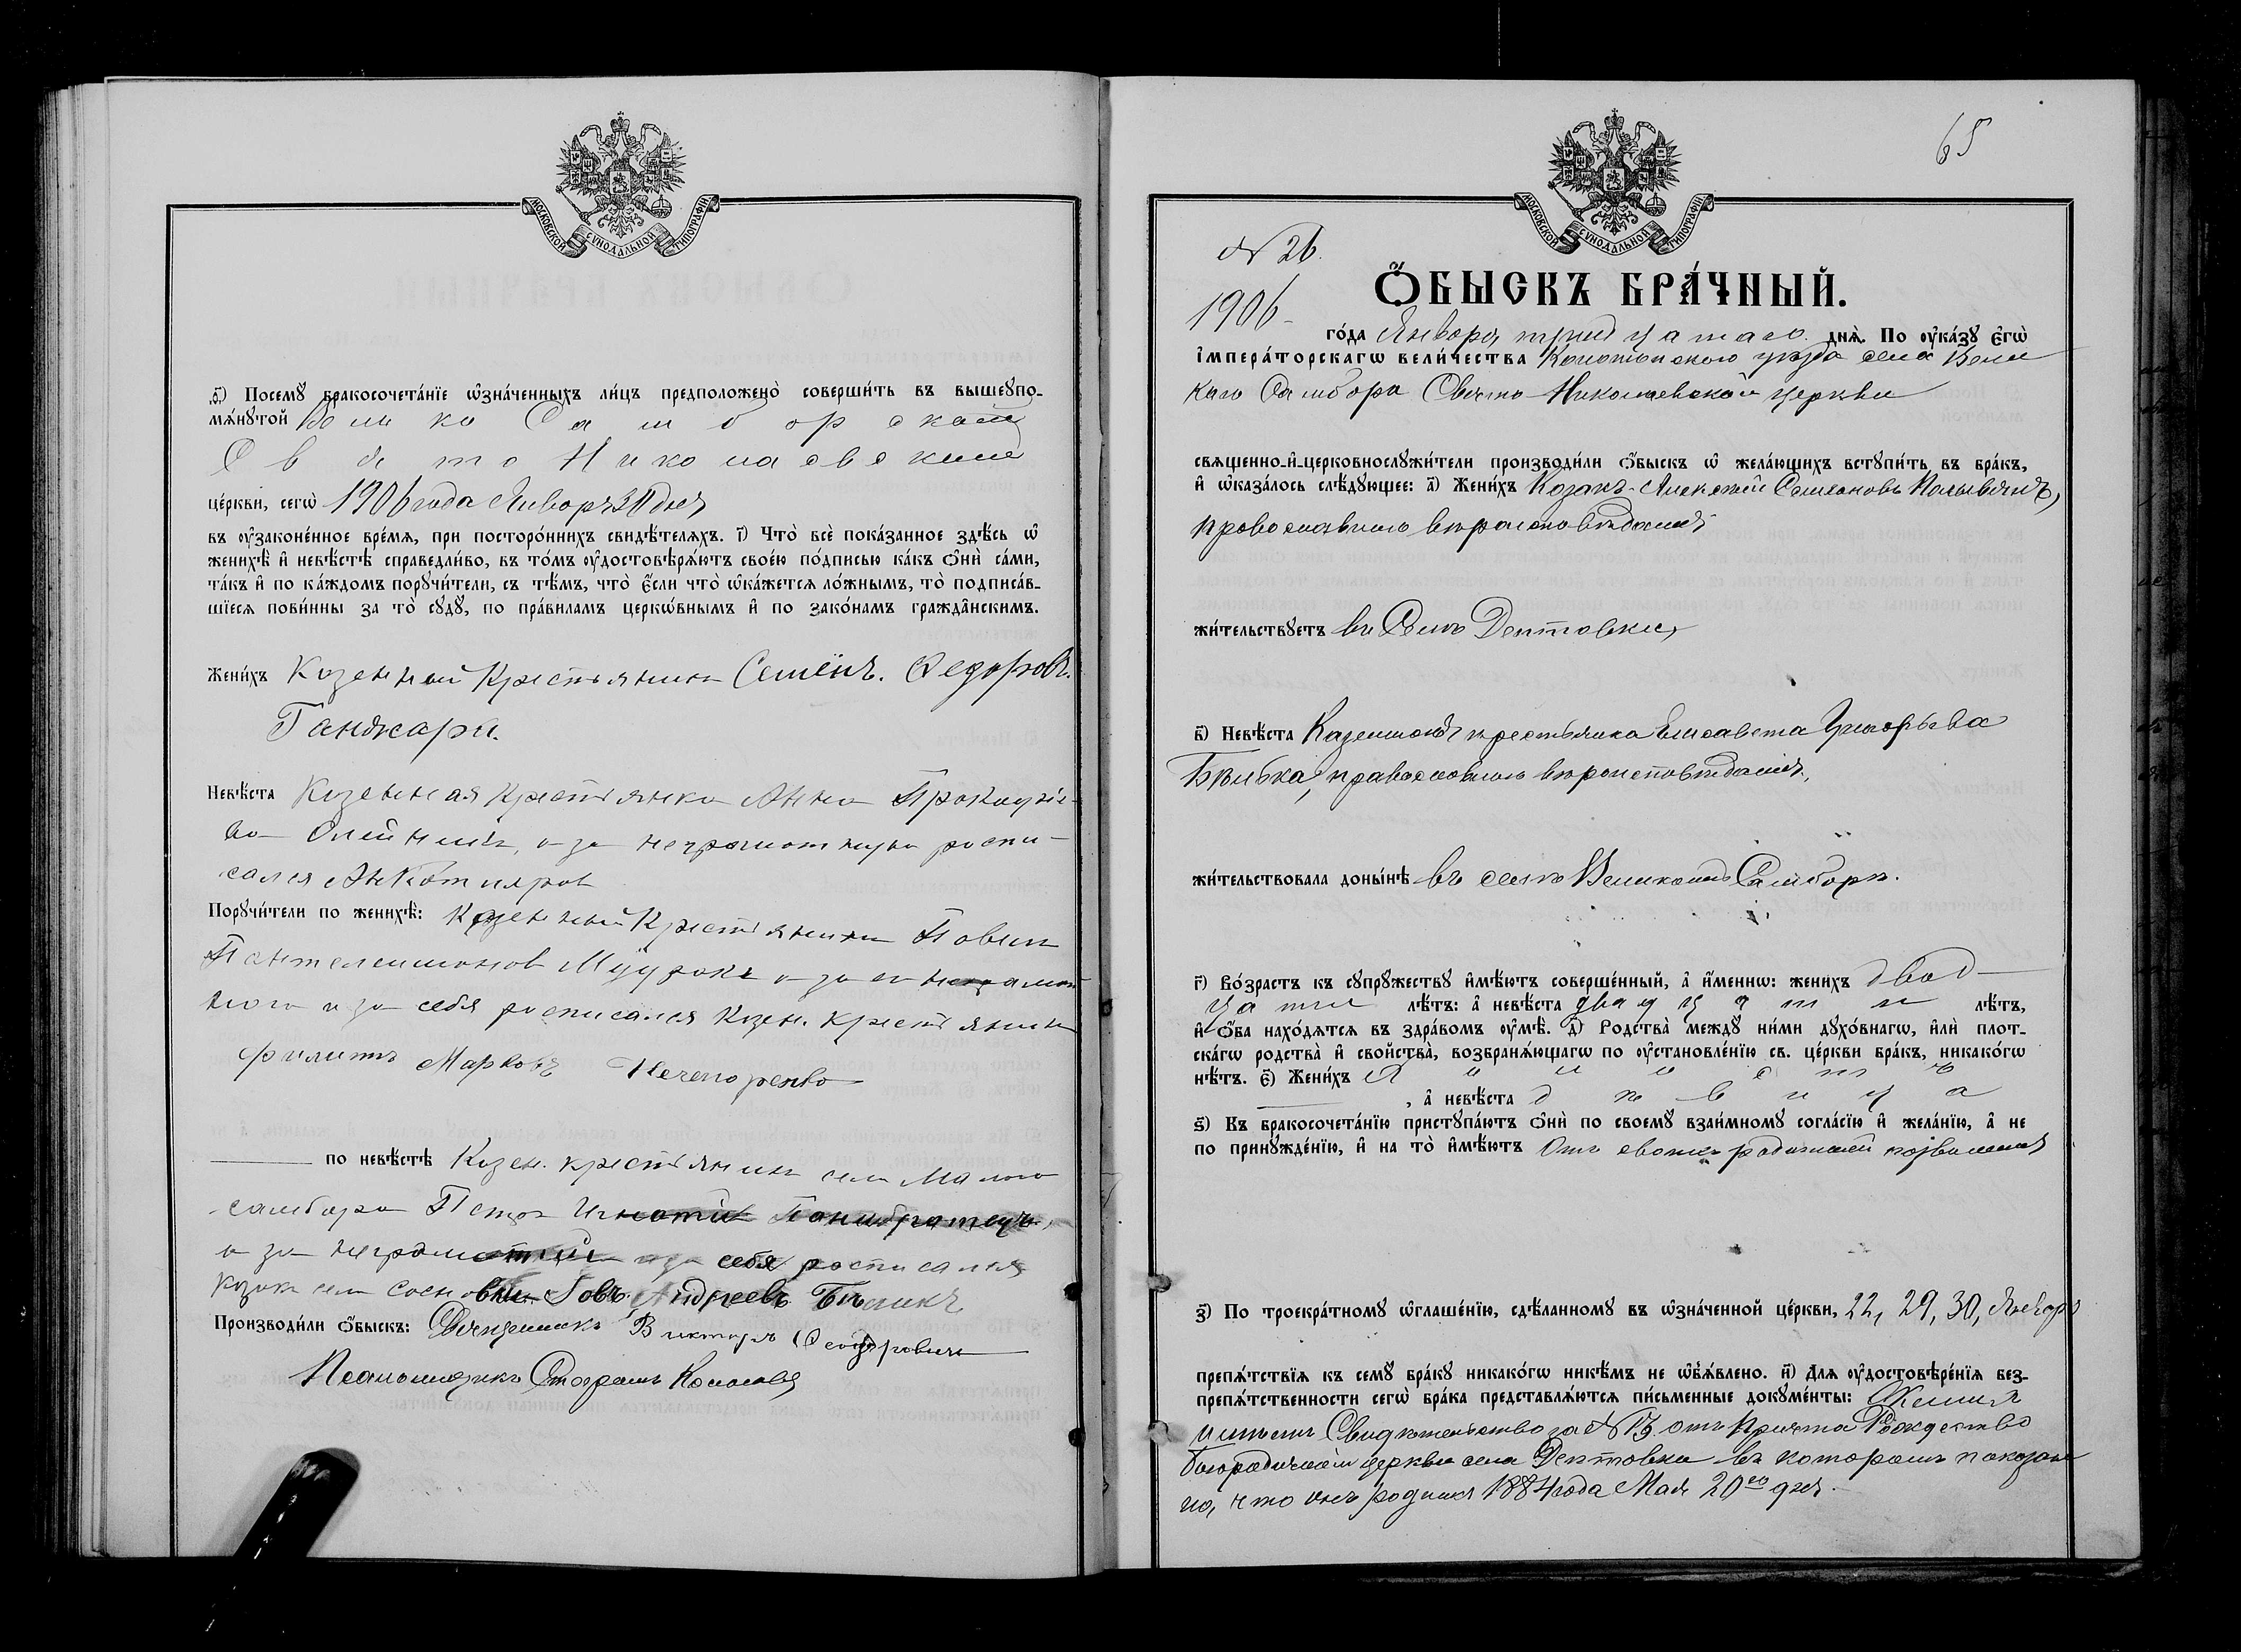 МОСКОВСКОЙ СѴНОДАЛЬНОЙ ТИПОГРАФІИ
ѳ҃) Посемꙋ бракосочета́нїе ѡ҆зна́ченныхъ ли́цъ предположено̀ соверши́ть въ вышеꙋпо-
мѧ́нꙋтой Велико Самборской
Свято Николаевской
це́ркви, сегѡ̀ 1906 года Января 30 дня
въ ᲂу҆законе́нное вре́мѧ, при посторо́ннихъ свидѣ́телѧхъ. і҃) Что̀ всѐ пока́занное здѣ́сь ѡ҆
женихѣ̀ и҆ невѣ́стѣ справедли́во, въ то́мъ ᲂу҆достовѣрѧ́ютъ свое́ю по́дписью ка́къ ѻ҆нѝ са́ми,
та́къ и҆ по ка́ждомъ порꙋчи́тели, съ тѣ́мъ, что̀ є҆́сли что̀ ѡ҆ка́жетсѧ ло́жнымъ, то̀ подписа́в-
шїесѧ пови́нны за то̀ сꙋдꙋ̀, по пра́виламъ церкѡ́внымъ и҆ по зако́намъ гражда̑нскимъ.
Жени́хъ Козенный Крестьянин Семёнъ. Федоровъ.
Ганжара.
Невѣ́ста Козенная Крестьянка Анна Прокофіе-
ва Олейник, а за неграмотную роспи-
сался
Порꙋчи́тели по женихѣ̀: Козенный Крестьянин Повел
Пантелеимонов а за ег неграмот
ного и за себя росписался Козен. крестьянин
филипъ Марковъ Нечепоренко
по невѣ́стѣ Козен. крестьянин села Малого
самбора Петро Игнатів Панибратецъ,
а за неграмотній и за себя росписался
козак села Сосновки Іовъ Андреевъ Билик
Производи́ли ѻ҆́быскъ: Священникъ Викторъ Ѳеодоровичъ
Псаломщикъ
МОСКОВСКОЙ СѴНОДАЛЬНОЙ ТИПОГРАФІИ
65
№ 26.
Ѻ҆́БЫСКЪ БРА́ЧНЫЙ.
1906 го́да Января тридцатаго днѧ̀. По ᲂу҆ка́зꙋ Є҆гѡ̀
І҆мпера́торскагѡ вели́чества Конотопского уезда села Вели
каго Самбора Свято-Николаевской церкви
свѧщенно-и҆-церковнослꙋжи́тели производи́ли ѻ҆́быскъ ѡ҆ жела́ющихъ встꙋпи́ть въ бра́къ,
и҆ ѡ҆каза́лось слѣ́дꙋющее: а҃) Жени́хъ Козакъ Алексѣй Семеновъ
православного вѣроисповѣданія
жи́тельствꙋетъ въ Селѣ Дептовки,
в҃) Невѣ́ста Казенноая крестьянка Елисавета Григорьева
православного вѣроисповѣданія,
жи́тельствовала доны́нѣ въ селѣ Великомъ Самборѣ.
г҃) Во́зрастъ къ сꙋпрꙋ́жествꙋ и҆мѣ́ютъ соверше́нный, а҆ и҆́меннѡ: жени́хъ двад-
цати лѣ́тъ: а҆ невѣ́ста двадцати лѣ́тъ,
и҆ ѻ҆́ба нахо́дѧтсѧ въ здра́вомъ ᲂу҆мѣ̀. д҃) Родства̀ междꙋ ни́ми дꙋхо́внагѡ, и҆лѝ плот-
ска́гѡ родства̀ и҆ свойства̀, возбранѧ́ющагѡ по ᲂу҆становле́нїю св. це́ркви бра́къ, никако́гѡ
нѣ́тъ. є҃) Жени́хъ Холостъ
, а҆ невѣ́ста дѣвица
ѕ҃) Къ бракосочета́нїю пристꙋпа́ютъ ѻ҆нѝ по своемꙋ̀ взаи́мномꙋ согла́сїю и҆ жела́нїю, а҆ не
по принꙋжде́нїю, и҆ на то̀ и҆мѣ́ютъ Отъ своихъ родителей позволения
з҃) По троекра́тномꙋ ѡ҆глаше́нїю, сдѣ́ланномꙋ въ ѡ҆зна́ченной це́ркви, 22, 29, 30, Января
препѧ́тствїѧ къ семꙋ̀ бра́кꙋ никако́гѡ никѣ́мъ не ѡ҆б̾ѧ́влено. и҃) Длѧ ᲂу҆достовѣре́нїѧ без-
препѧ́тственности сегѡ̀ бра́ка представлѧ́ютсѧ пи́сьменные докꙋме́нты: Жених
имѣетъ Свидѣтельство за № 13 отъ Причта Рождество
богородичной церкви села Дептовки въ которомъ показан
но, что онъ родился 1884 года Мая 20го дня.